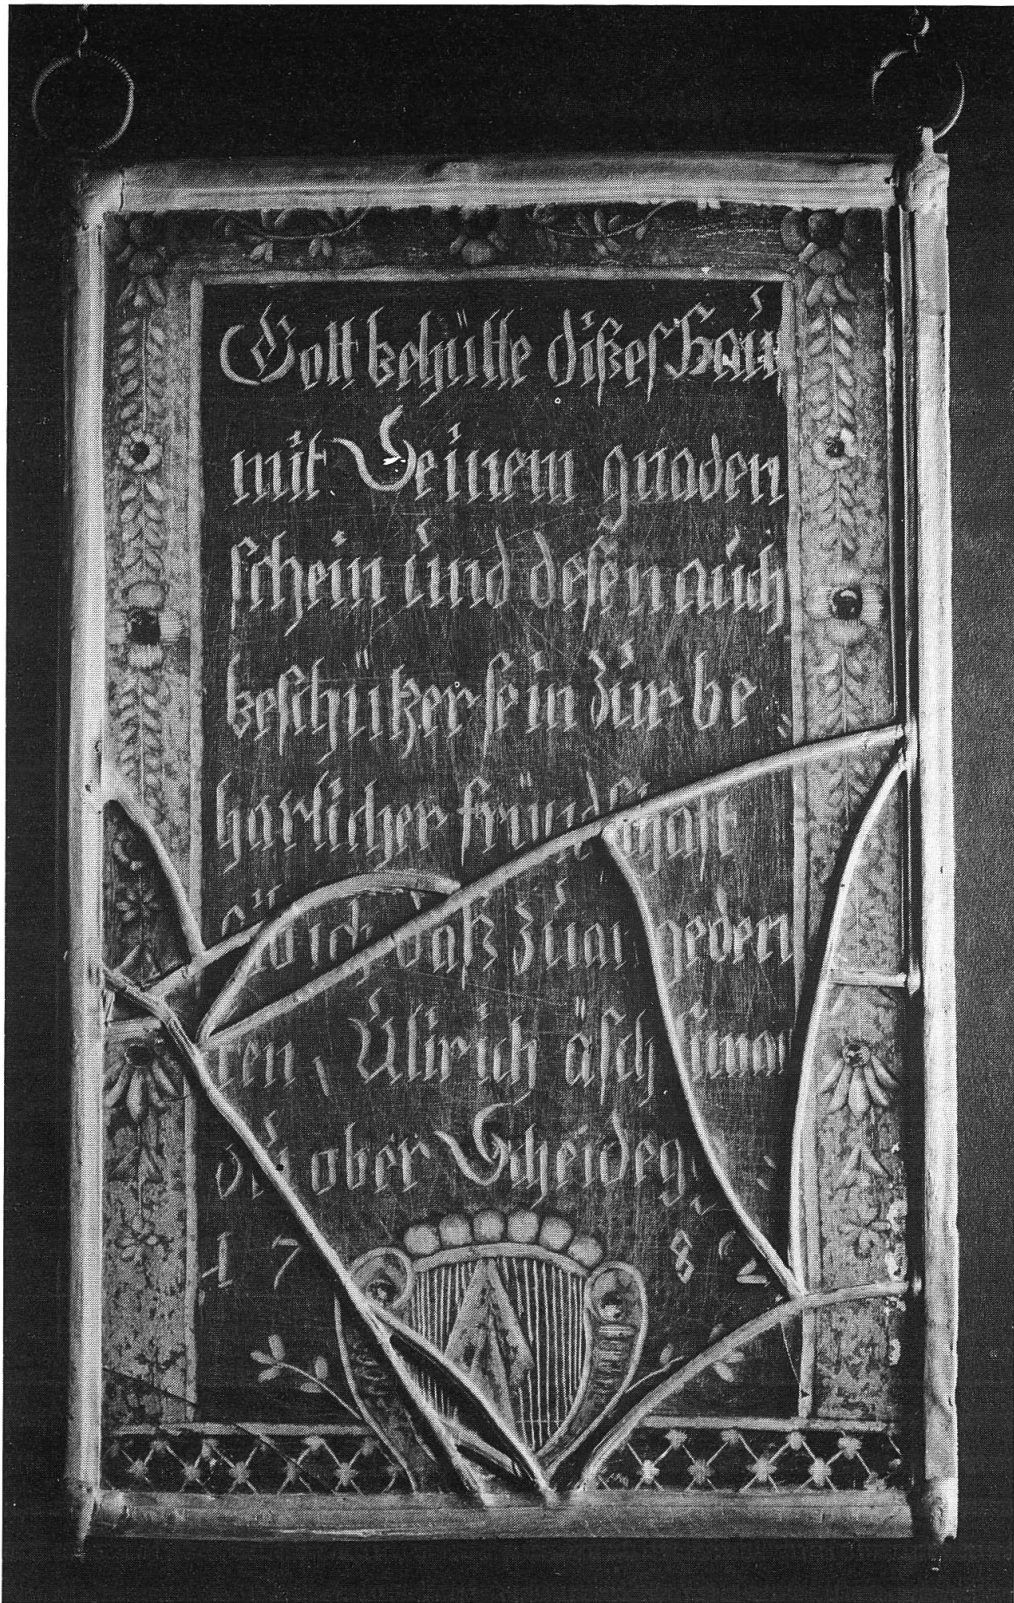 Gott behütte dißes Hauß
mit Seinem gnaden
schein und desen auch
beschützer sein zur be
harlicher fründschaft
daß zum geden
ken, Ulirich äsch
ober Scheideg
17 82